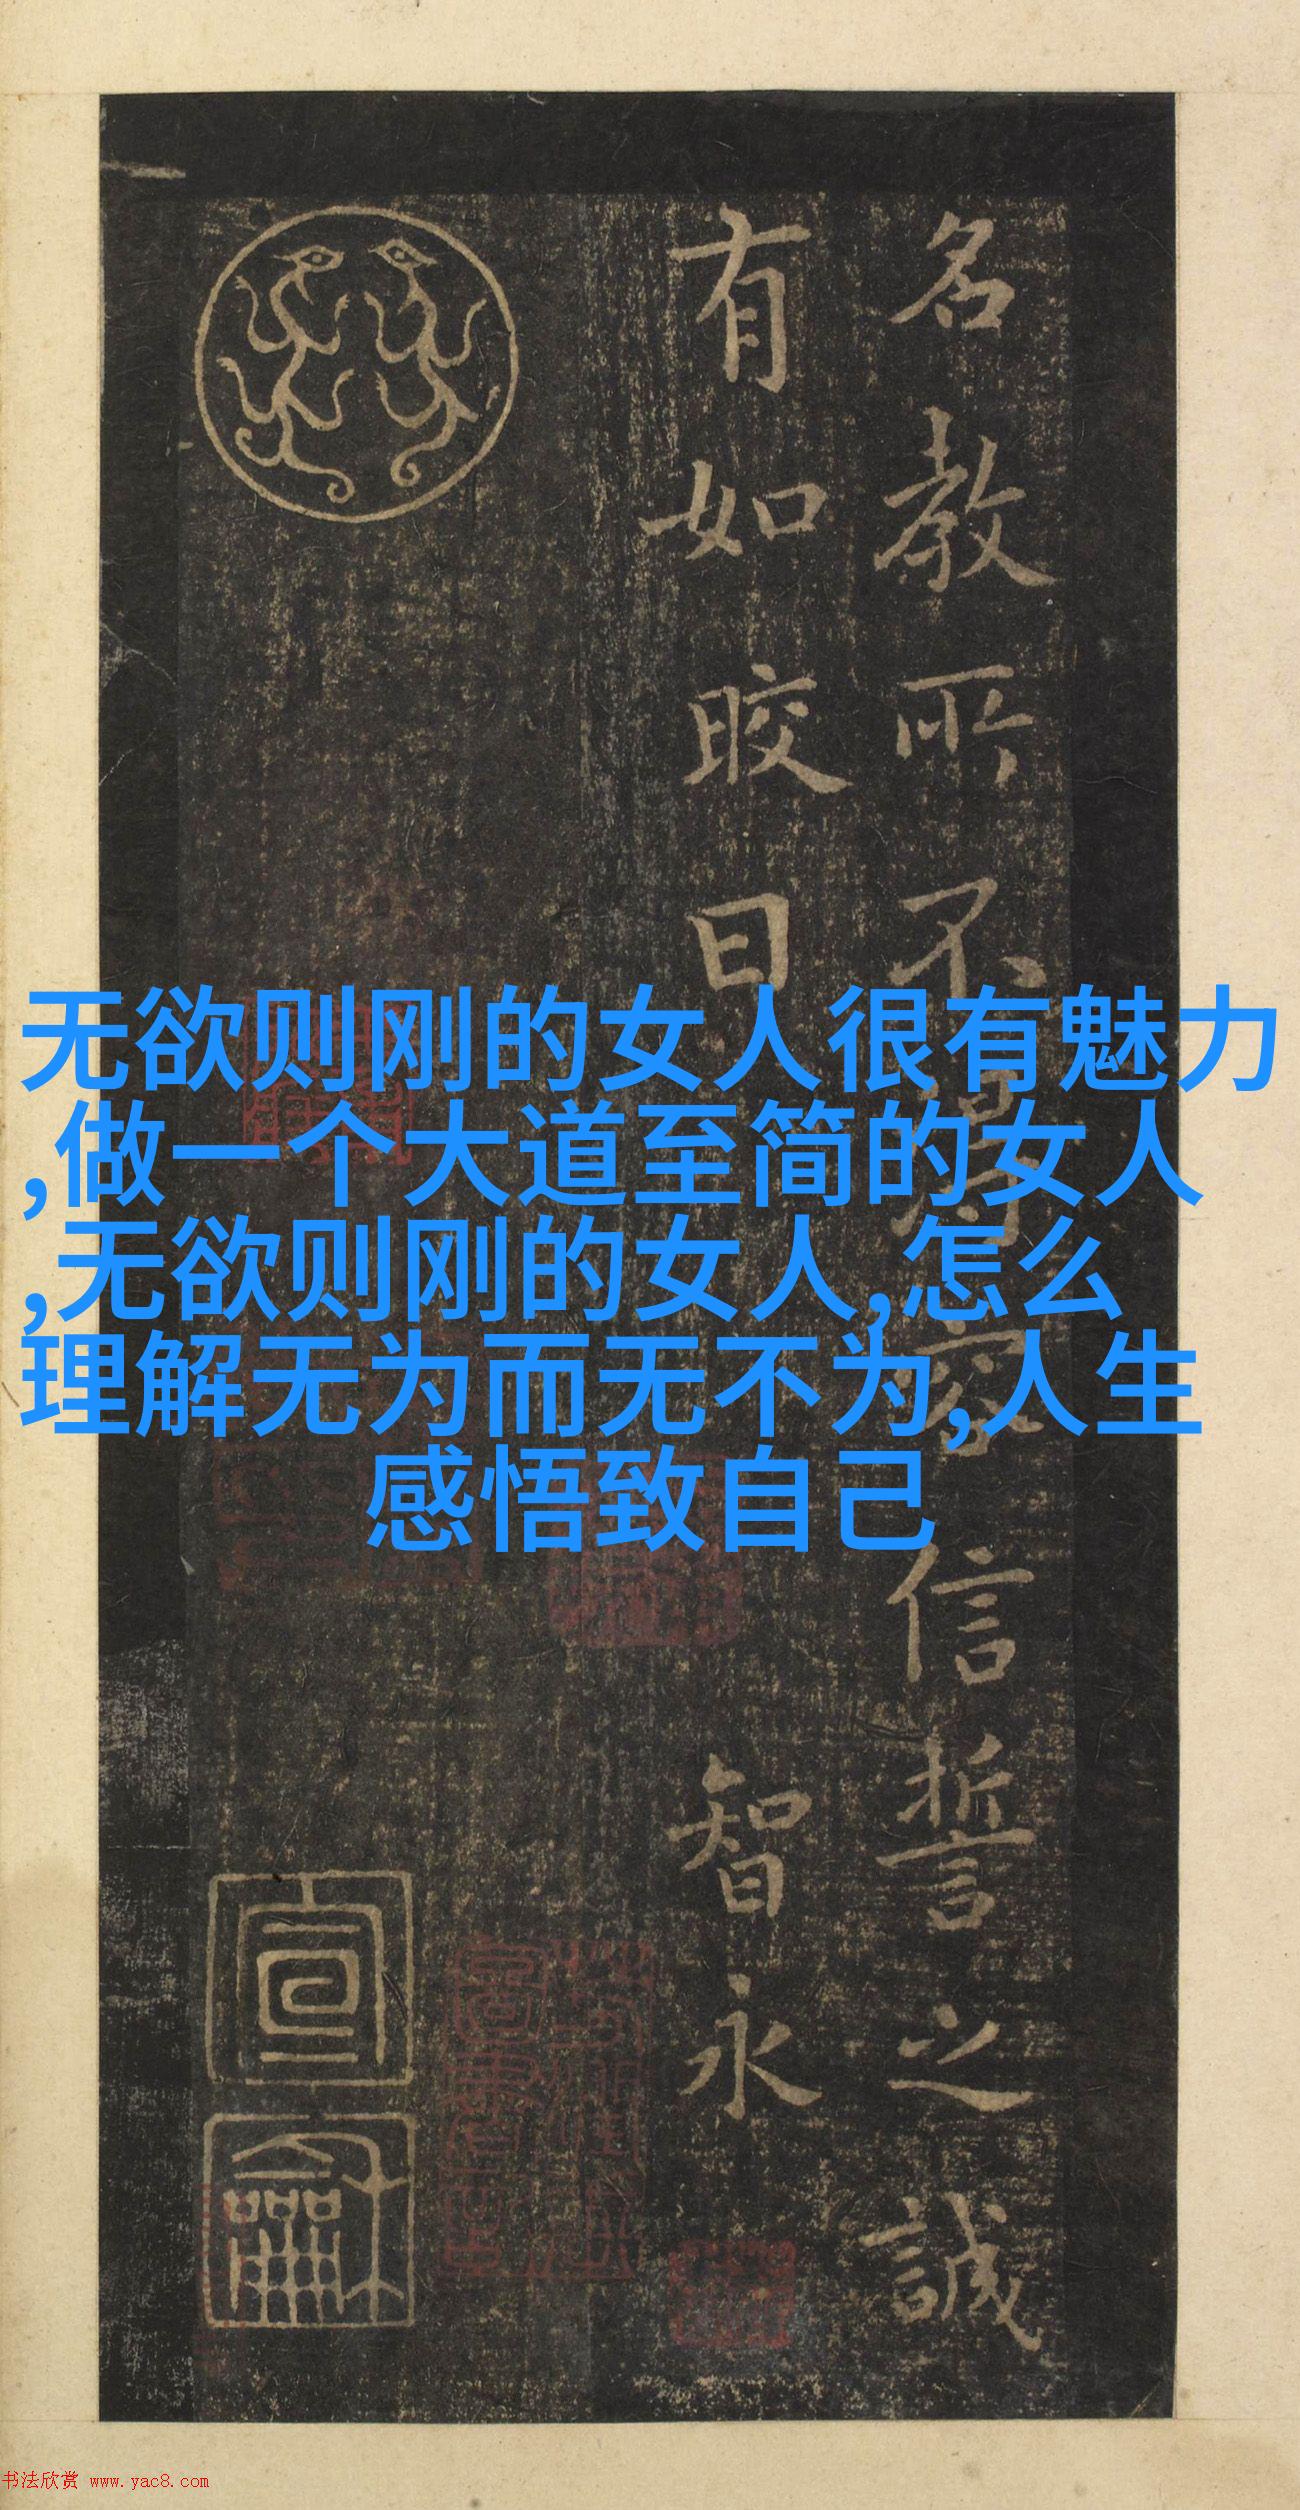 名教所不得容信誓之誠
有如晈日 智永
宣
龢
无欲则刚的女人很有魅力
,做一个大道至简的女人
,无欲则刚的女人,怎么
理解无为而无不为,人生
感悟致自己
书法欣赏 www.yac8.com